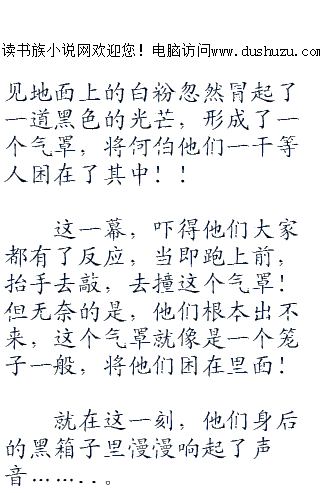 读书族小说网欢迎您！电脑访问www.dushuzu.com
见地面上的白粉忽然冒起了
一道黑色的光芒，形成了一
个气罩，将何伯他们一干等
人困在了其中！！
这一幕，吓得他们大家
都有了反应，当即跑上前，
抬手去敲，去撞这个气罩！
但无奈的是，他们根本出不
来，这个气罩就像是一个笼
子一般，将他们困在里面！
就在这一刻，他们身后
的黑箱子里慢慢响起了声
音……..。